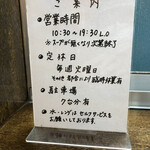 ご案内
●営業時間
10:30〜19:30 L.O
※スープが無くなり次第終了
●定休日
毎週火曜日
その他 都合により臨時休業有
●駐車場
7台分有
●水・レンゲはセルフサービスを
お願いしております